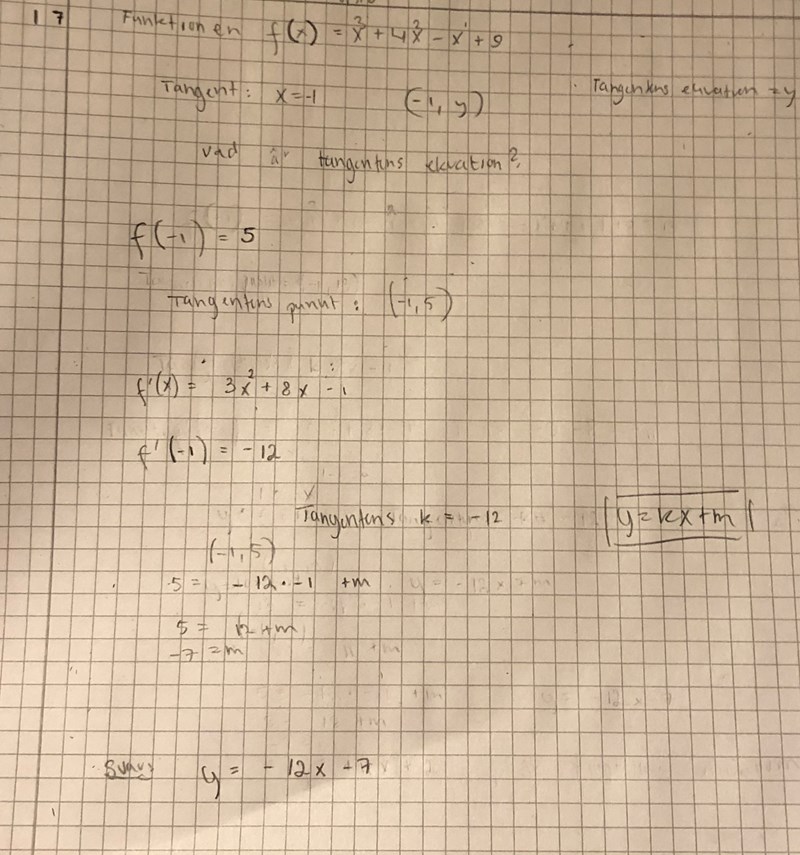 17 Funktionen f(x) = x³ + 4x² - x¹ + 9
Tangent: x = -1 (-1, y) Tangentens ekvation = y
vad är tangentens ekvation?
f(-1) = 5
Tangentens punkt: (-1, 5)
f'(x) = 3x² + 8x - 1
f'(-1) = -12
Tangentens k = -12 y = kx + m
(-1, 5)
5 = -12 · -1 + m
5 = 12 + m
-7 = m
Svar: y = -12x - 7